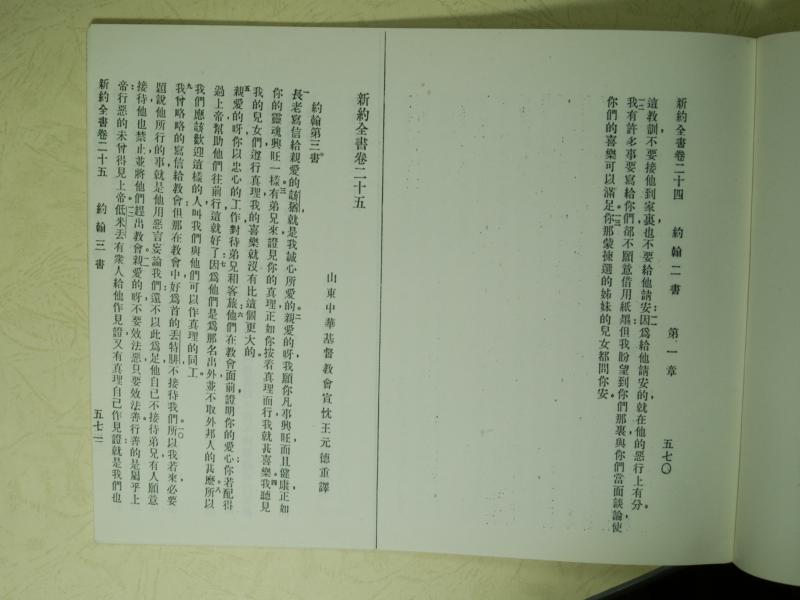 新約全書卷二十四 約翰二書 第一章 五七〇
這教訓不要接他到家裏也不要給他請安因爲給他請安的就在他的惡行上有分。
我有許多事要寫給你們都不願意借用紙墨但我盼望到你們那裏與你們當面談論使
你們的喜樂可以滿足你那蒙揀選的姊妹的兒女都問你安。
新約全書卷二十五
山東中華基督教會宣忱王元德重譯
約翰第三書
長老寫信給親愛的該猶就是我誠心所愛的親愛的呀我願你凡事興旺而且健康正如
你的靈魂興旺一樣有弟兄來證見你的真理正如你按着真理而行我就甚喜樂我聽見
我的兒女們遵行真理我的喜樂就沒有比這個更大的。
親愛的呀你以忠心的工作對待弟兄和客旅他們在教會面前證明你的愛心你若配得
過上帝幫助他們往前行這就好了因爲他們是爲那名出外並不取外邦人的甚麽所以
我們應該歡迎這樣的人叫我們與他們可以作真理的同工。
我曾略略的寫信給教會但那在教會中好爲首的丟特腓不接待我們所以我若來必要
題說他所行的事就是他用惡言妄論我們還不以此爲足他自己不接待弟兄有人願意
接待他也禁止並將他們趕出教會親愛的呀不要效法惡只要效法善行善的是屬乎上
帝行惡的未曾得見上帝低米丟有衆人給他作見證又有真理自己作見證就是我們也
新約全書卷二十五 約翰三書 五七一